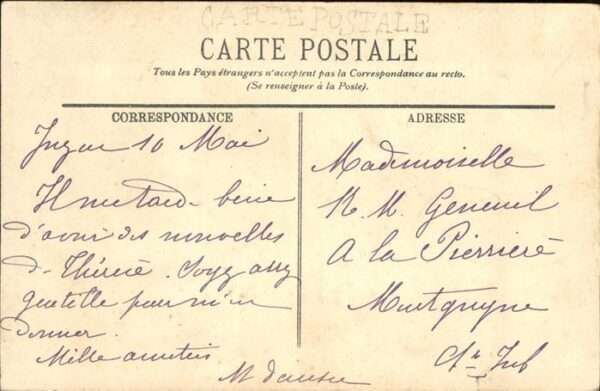 CARTE POSTALE
CARTE POSTALE
Tous les Pays étrangers n'acceptent pas la Correspondance au recto.
(Se renseigner à la Poste).
CORRESPONDANCE
10 Mai
d'avoir des nouvelles
de Thérèse. Soyez assez
gentille pour m'en
donner.
Mille amitiés
M
ADRESSE
Mademoiselle
M. Geneuil
A la Pierrière